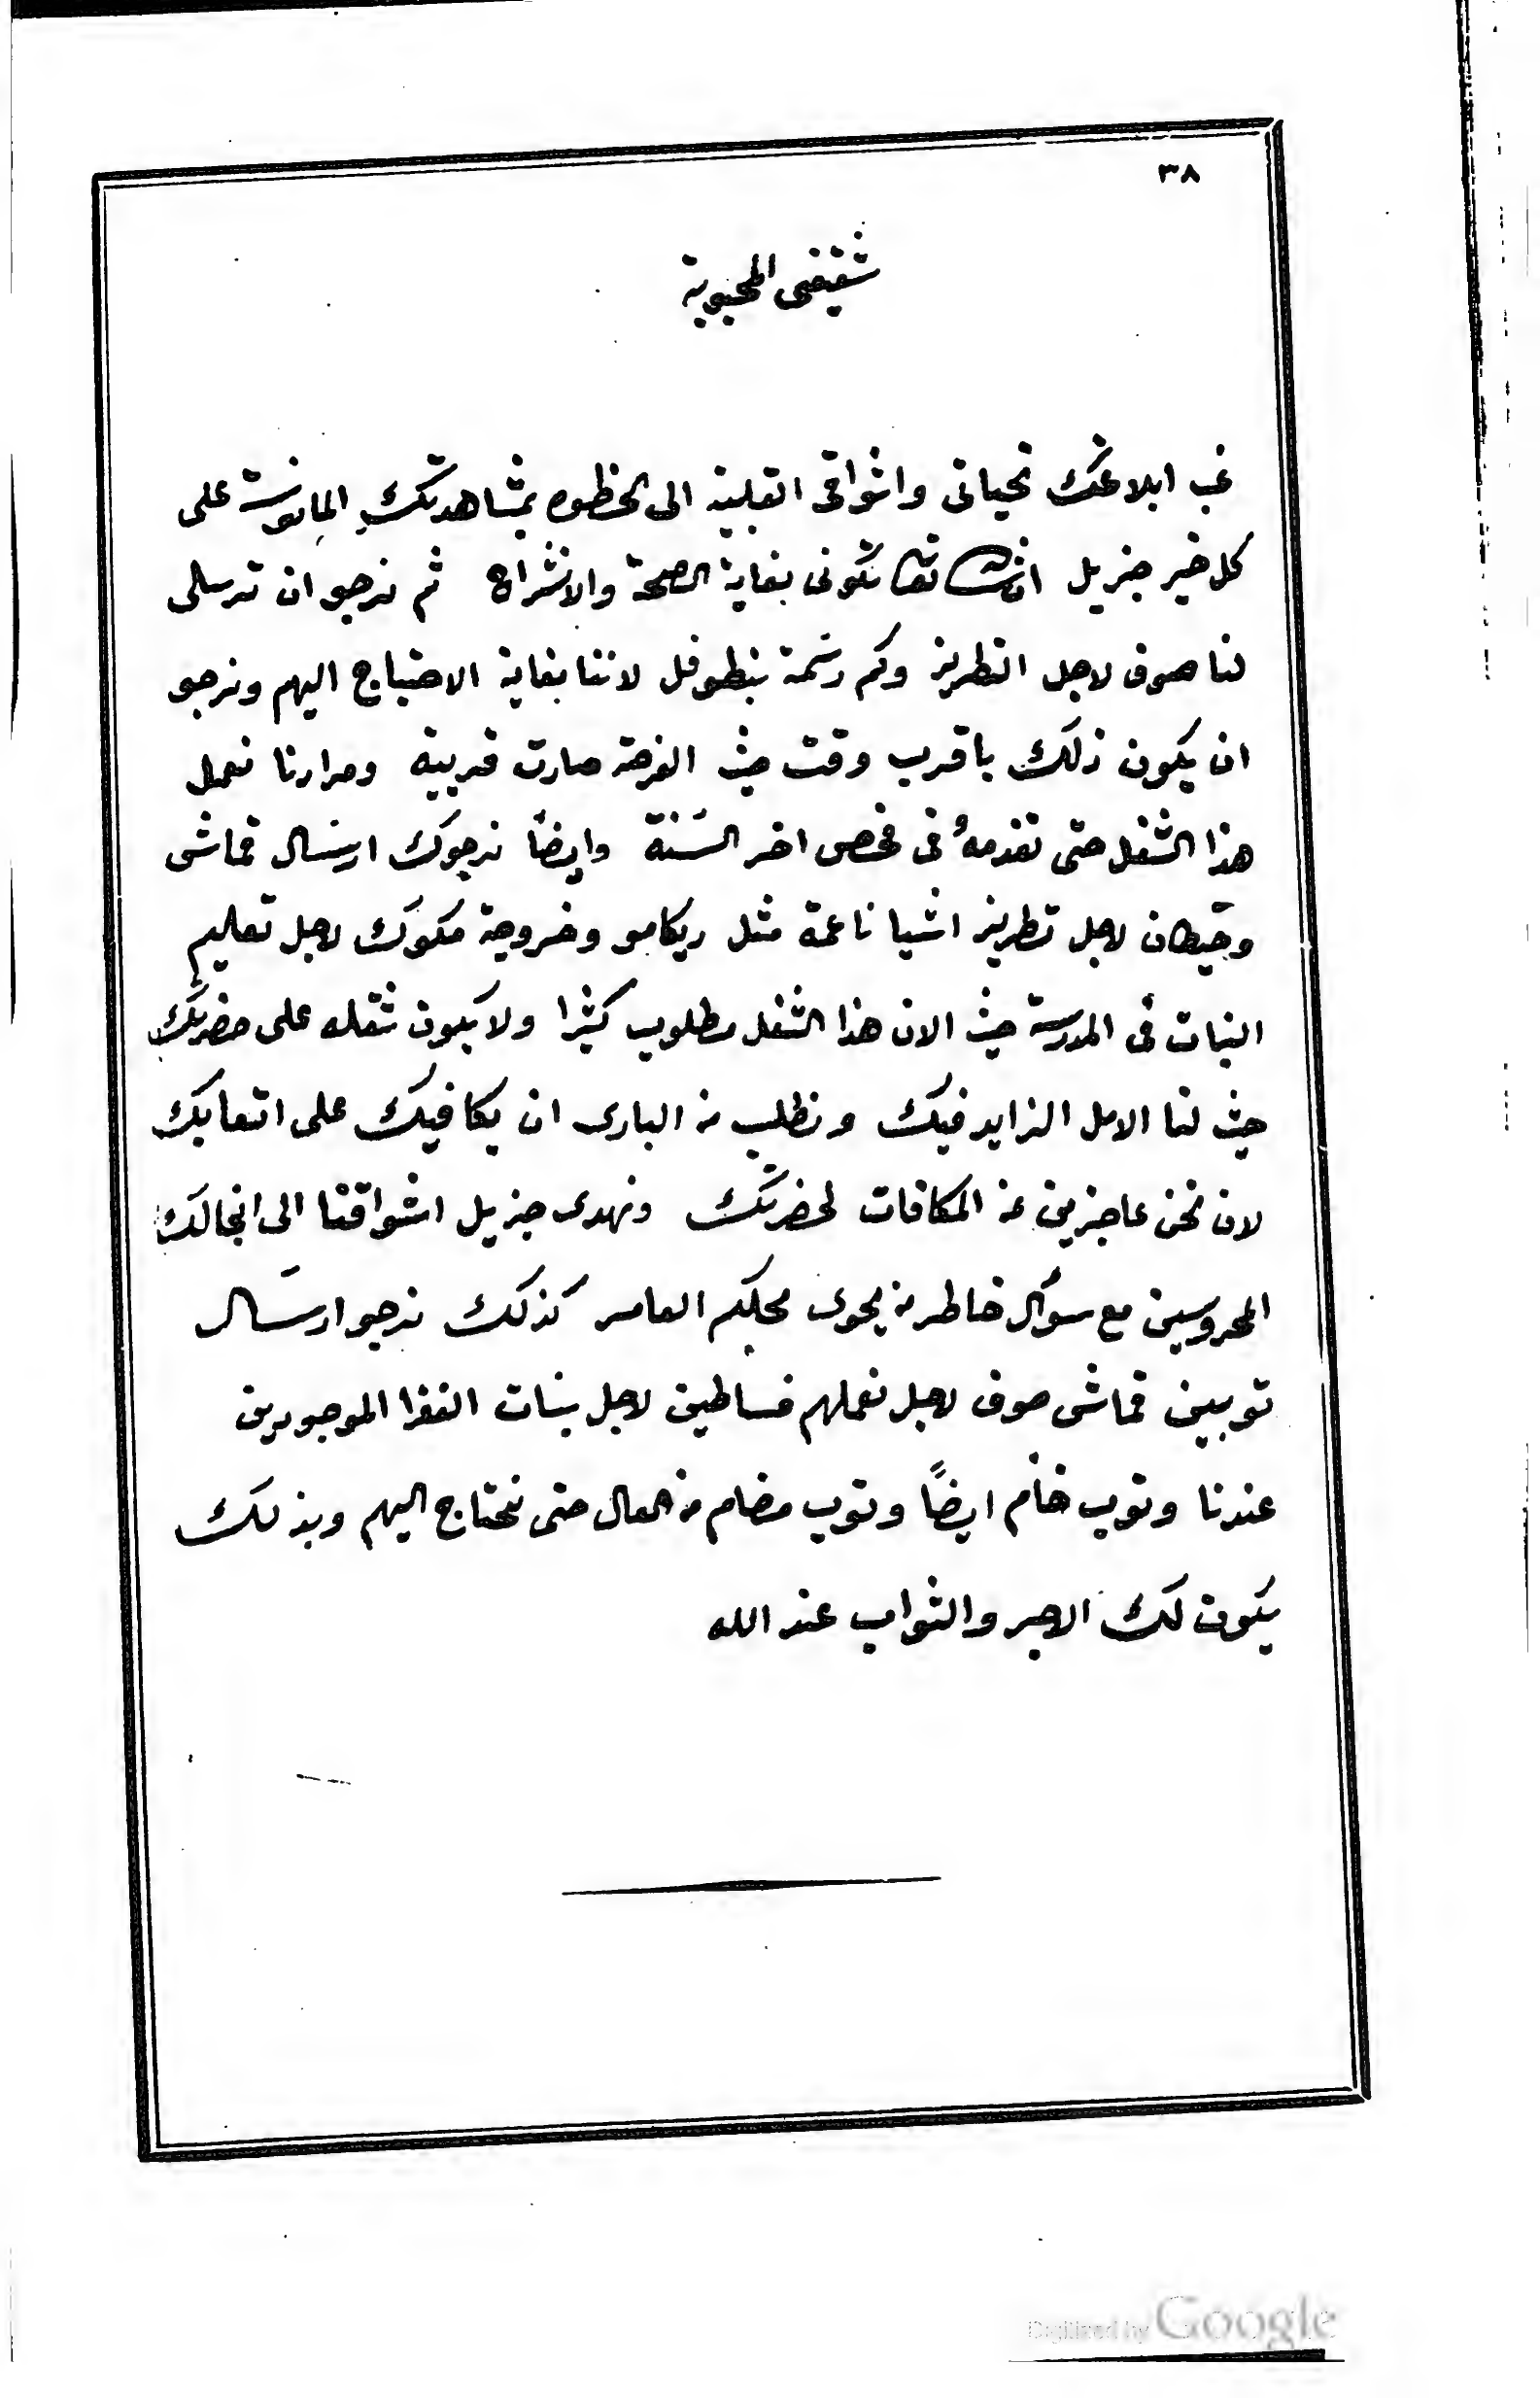 ٣٨
شقيقتي المحبوبة
غب ابلاغك تحياتي واشواقي القلبية الى الحظوه بمشاهدتكِ المانوسة على
كل خير جزيل انشالله تعا تكوني بغاية الصحة والانشراح ثم نرجو ان ترسلي
لنا صوف لاجل التطريز وكم رسمة بنطوفل لاننا بغاية الاحتياج اليهم ونرجو
ان يكون ذلك باقرب وقت حيث الفرصة صارت قريبة ومرادنا نعمل
هذا الشغل حتى نقدمهُ في فحص اخر السَنة وايضًا نرجوك ارسال قماش
وخيطان لاجل تطريز اشيا ناعمة مثل ريكامو وخروجة مكوك لاجل تعليم
البنات في المدرسة حيث الان هذا الشغل مطلوب كثيرا ولا يكون ثقله على حضرتك
حيث لنا الامل الزايد فيك ونطلب من الباري ان يكافيك على اتعابك
لان نحن عاجزين عن المكافات لحضرتك ونهدي جزيل اشواقنا الى انجالك
المحروسين مع سؤال خاطر من يحوي محلكم العامر كذلك نرجو ارسال
توبين قماش صوف لاجل نعملهم فساطين لاجل بنات الفقرا الموجودين
عندنا وتوب خام ايضًا وتوب مضام من العال حتى نحتاج اليهم وبذلك
يكون لك الاجر والثواب عند الله
Digitized by Google